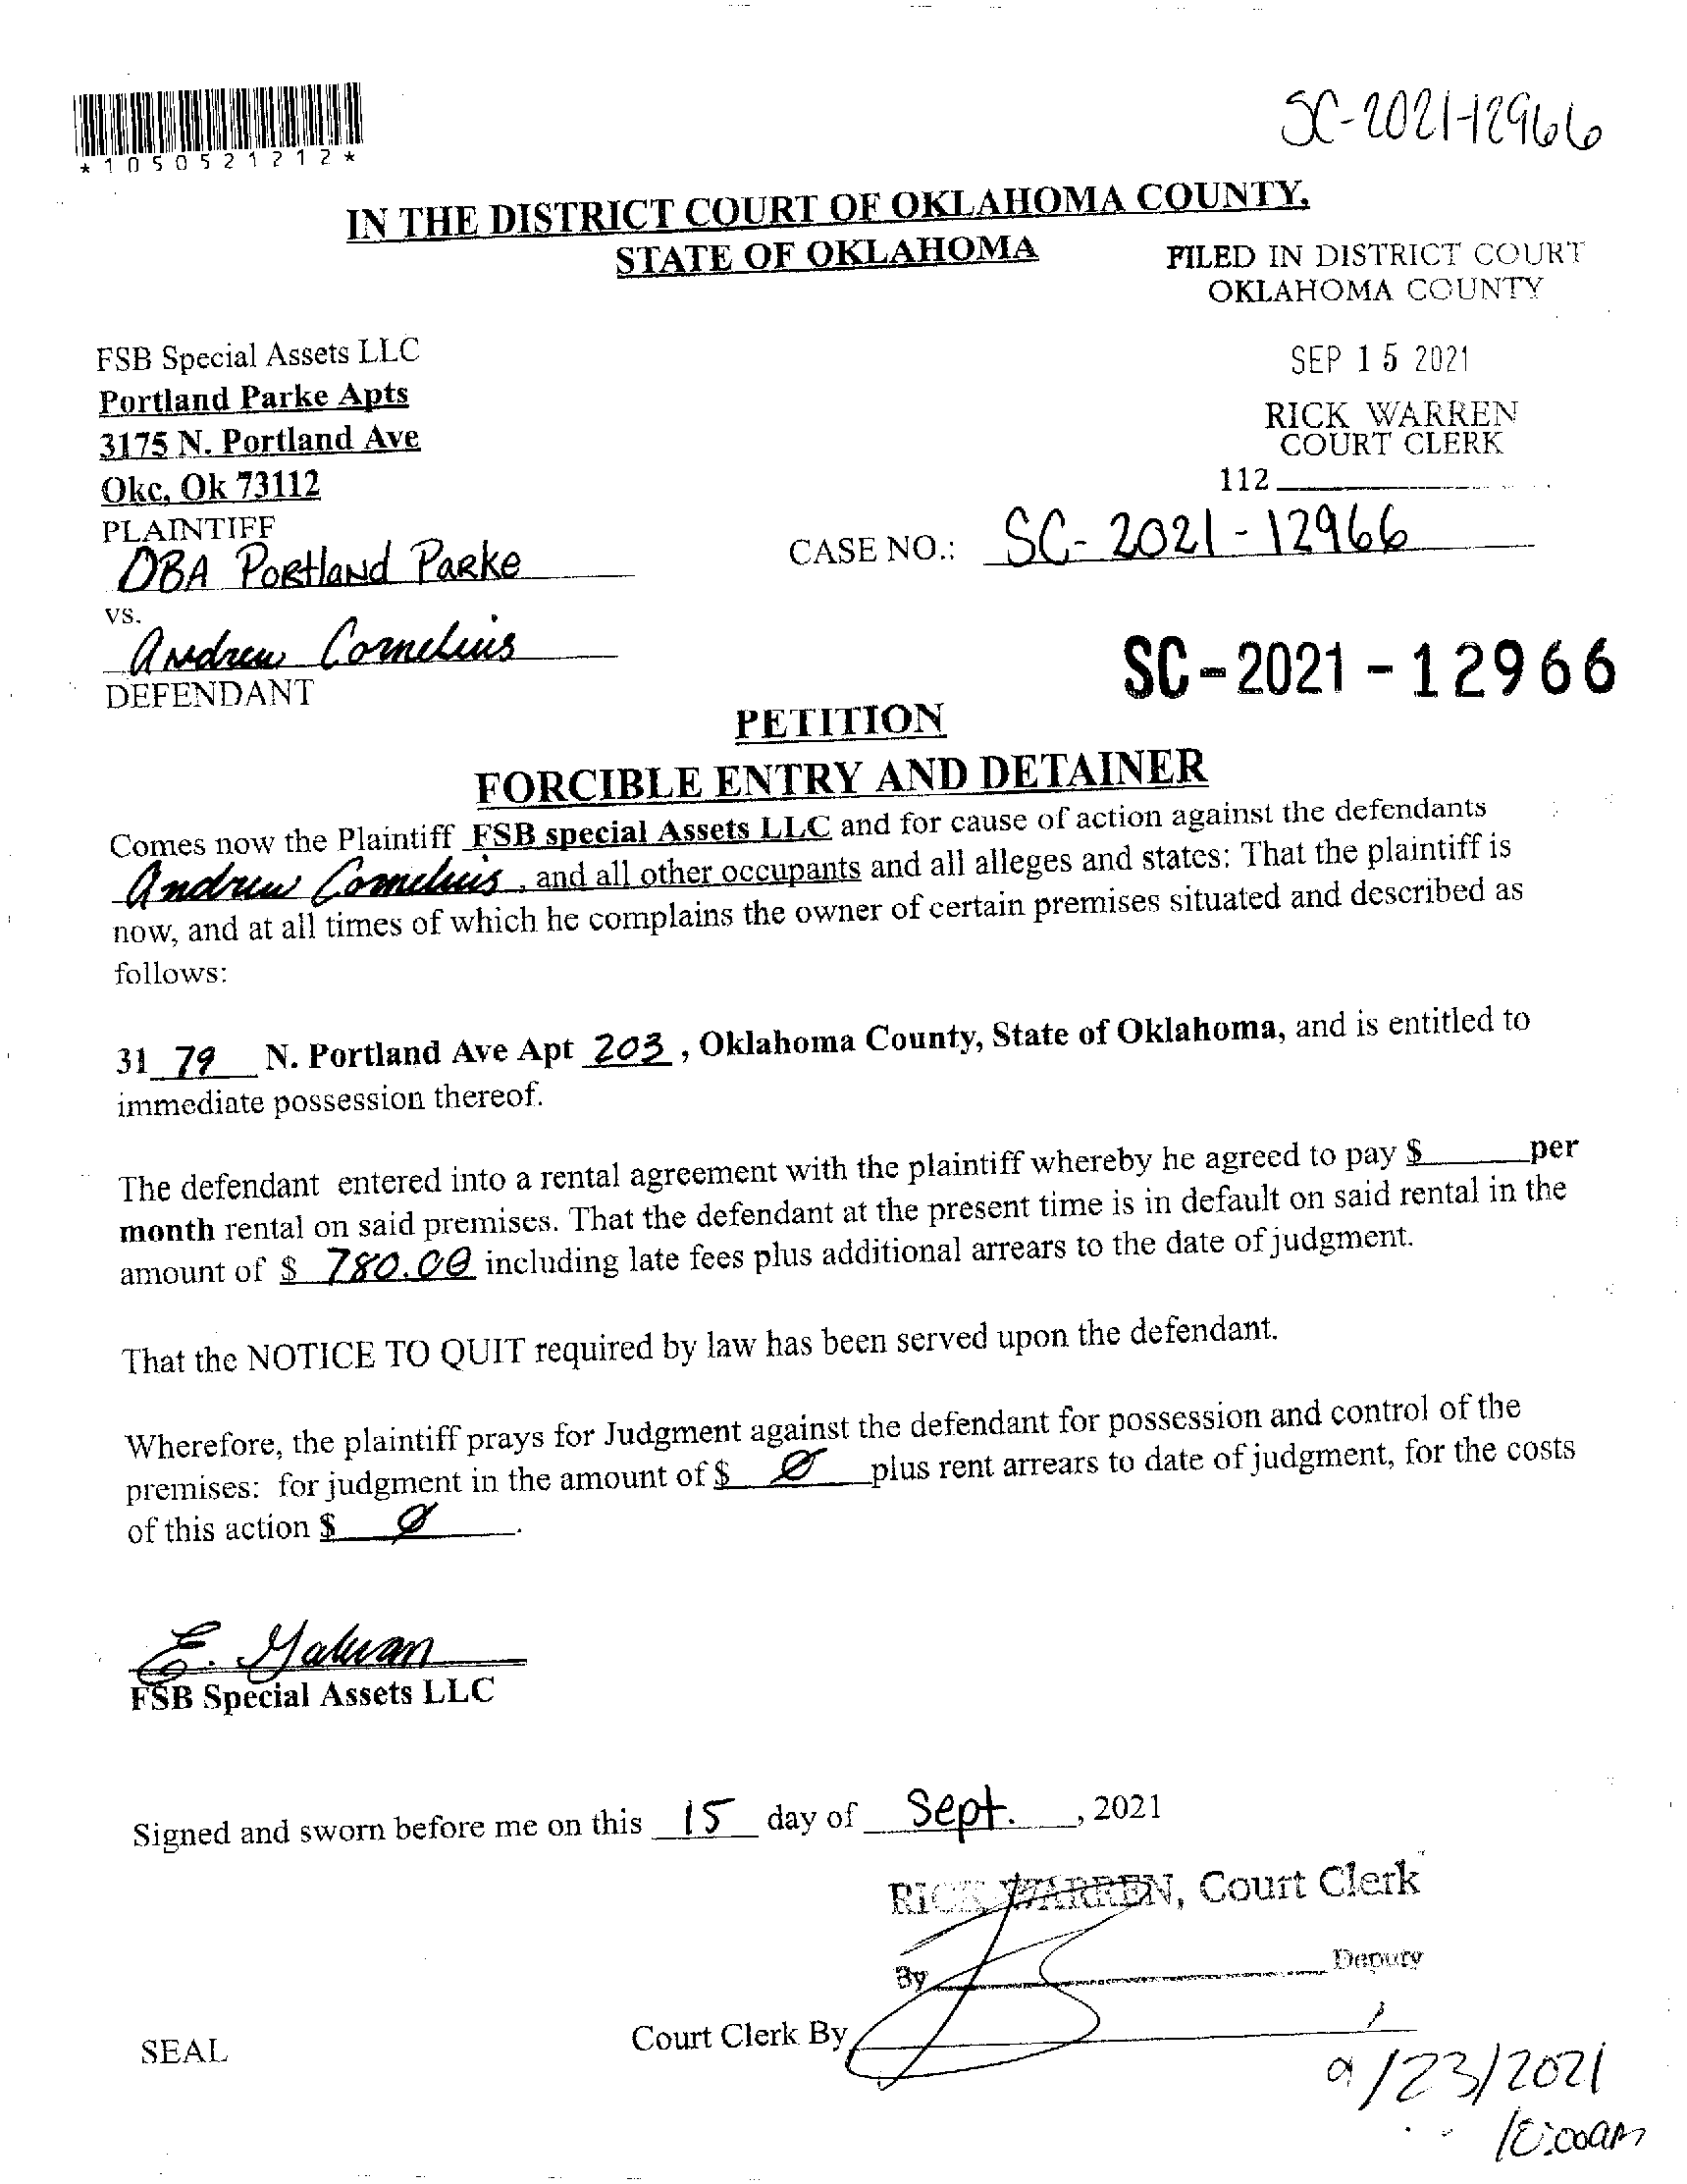 SC-2021-12966
*1050521212*
IN THE DISTRICT COURT OF OKLAHOMA COUNTY,
STATE OF OKLAHOMA
FILED IN DISTRICT COURT
OKLAHOMA COUNTY
FSB Special Assets LLC
SEP 15 2021
Portland Parke Apts
RICK WARREN
3175 N. Portland Ave
COURT CLERK
Okc, Ok 73112
112
PLAINTIFF
DBA Portland Parke
CASE NO.: SC-2021-12966
vs.
Andrew Cornelius
SC-2021-12966
DEFENDANT
PETITION
FORCIBLE ENTRY AND DETAINER
Comes now the Plaintiff FSB special Assets LLC and for cause of action against the defendants
Andrew Cornelius, and all other occupants and all alleges and states: That the plaintiff is
now, and at all times of which he complains the owner of certain premises situated and described as
follows:
31 79 N. Portland Ave Apt 203, Oklahoma County, State of Oklahoma, and is entitled to
immediate possession thereof.
The defendant entered into a rental agreement with the plaintiff whereby he agreed to pay $______per
month rental on said premises. That the defendant at the present time is in default on said rental in the
amount of $ 780.00 including late fees plus additional arrears to the date of judgment.
That the NOTICE TO QUIT required by law has been served upon the defendant.
Wherefore, the plaintiff prays for Judgment against the defendant for possession and control of the
premises: for judgment in the amount of $ Ø plus rent arrears to date of judgment, for the costs
of this action $ Ø.
E. Galvan
FSB Special Assets LLC
Signed and sworn before me on this 15 day of Sept., 2021
RICK WARREN, Court Clerk
By Deputy
Court Clerk By
SEAL
9/23/2021
10:00am